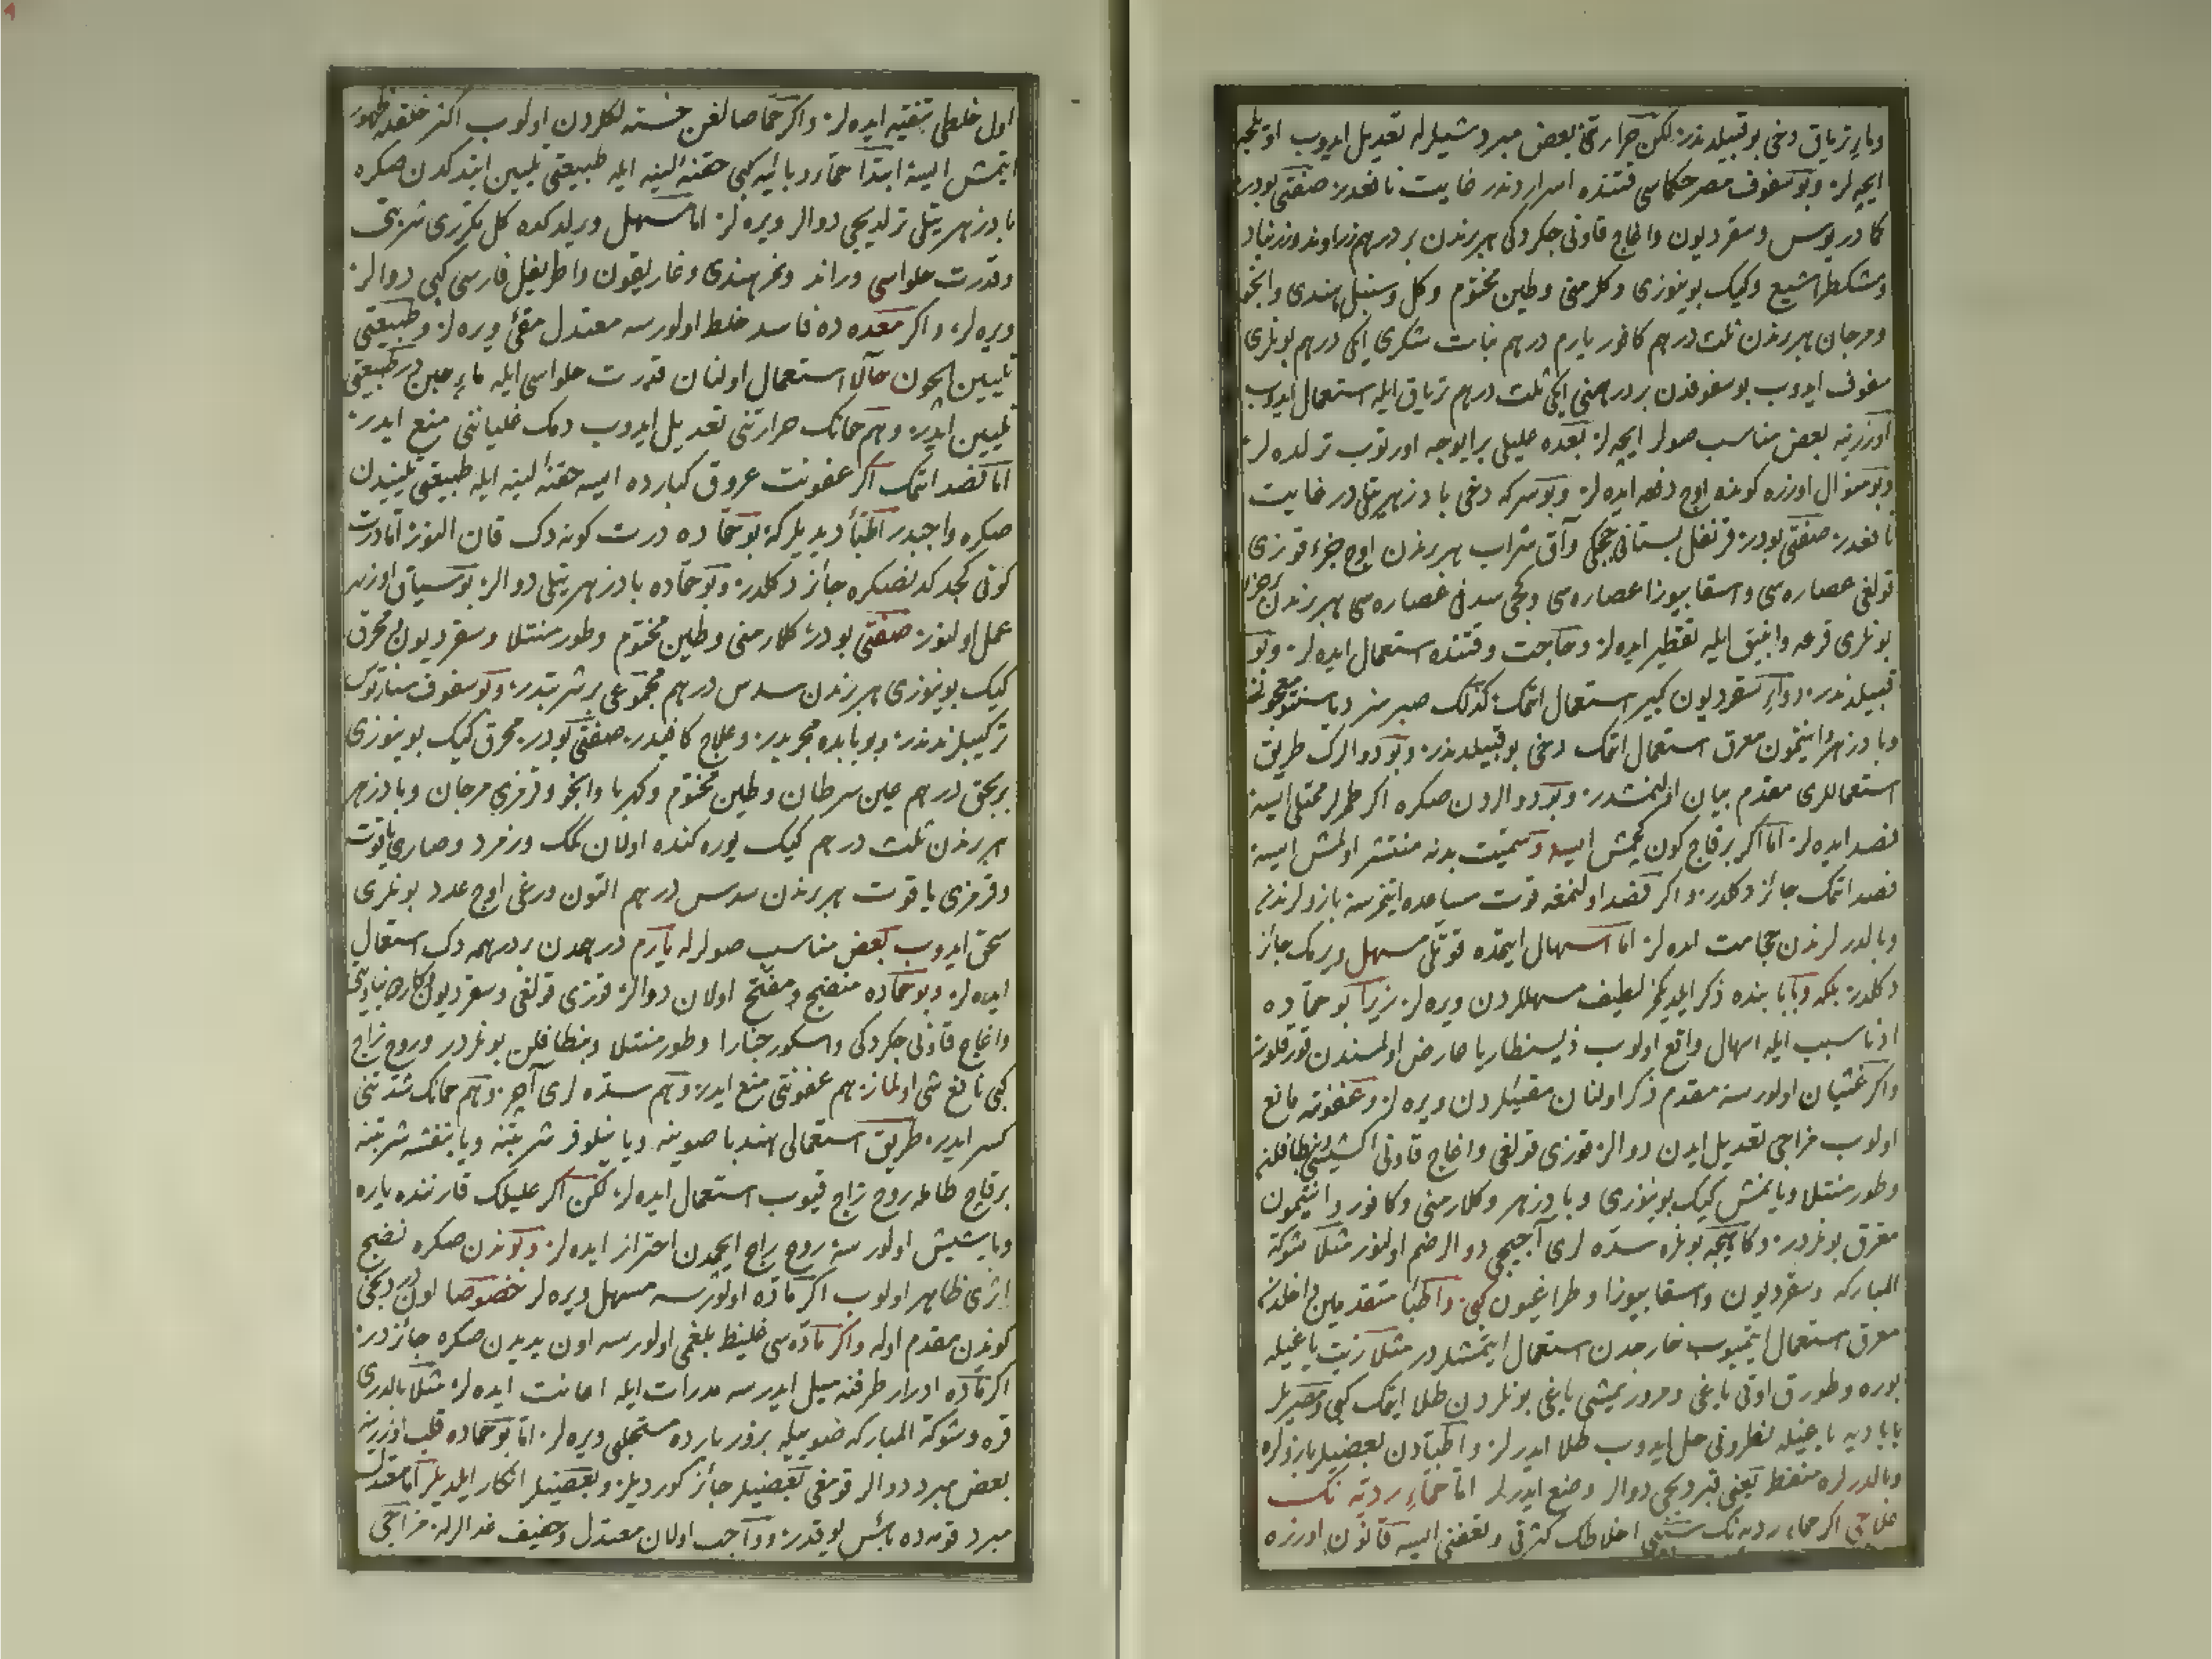 وماء ترياق دخی بو قبیلدندر لکن حرارتی بعض مبرد شیلرله تعدیل ایدوب
ایچه لر و بو سفوف مصر حکماسی قتنده اسراردندر غایت نافعدر صفتی بودر
کمادریوس وسقردیون واغاج قاونی چکردکی هربرندن بر درهم زراوند وزرنباد
ومشکطرامشیع وکیک بوینوزی وکلرمنی وطین مختوم وکل وسنبل هندی وانجو
ومرجان هربرندن ثلث درهم کافور یارم درهم نبات شکری ایکی درهم بونلری
سفوف ایدوب بو سفوفدن بر درهمنی ایکی ثلث درهم تریاق ایله استعمال ایدوب
اوزرینه بعض مناسب صولر ایچه لر بعده علیلی بر ایوجه اورتوب ترلده لر
وبو منوال اوزره کونده اوچ دفعه ایده لر وبو سرکه دخی بادزهریتلی در غایت
نافعدر صفتی بودر قرنفل بستانی چیچکی وآق شراب هربرندن اوچ جزء قوزی
قولغی عصاره سی واسقابیوزا عصاره سی عصاره سی هربرندن
بونلری قرعه وانبیق ایله تقطیر ایده لر وحاجت وقتنده استعمال ایده لر وبو
قبیلدندر دواء سقوردیون کبیر استعمال اتمک کذلک صبر
وبادزهر وانتیمون معرق استعمال اتمک دخی بو قبیلدندر وبو دوالرک طریق
استعماللری مقدم بیان اولنمشدر وبو دوالردن صکره اکر طمرلر ممتلی ایسه
فصد ایده لر اما اکر برقاچ کون کچمش ایسه وسمیت بدنه منتشر اولمش ایسه
فصد اتمک جائز دکلدر واکر فصد اولنمغه قوت مساعده ایتمزسه بازولرندن
وبالدرلرندن حجامت ایده لر اما اسهال ایتمده قوتلی مسهل ویرمک جائز
دکلدر بلکه وبا بابنده ذکر ایلدیکمز لطیف مسهللردن ویره لر زیرا بو حماده
ادنا سبب ایله اسهال واقع اولوب ذیسنطاریا عارض اولمسندن قورقلور
واکر غشیان اولورسه مقدم ذکر اولنان مقیئلردن ویره لر وعفونته مانع
اولوب مزاجی تعدیل ایدن دوالر قوزی قولغی واغاج قاونی
وطورمنتلا ویانمش کیک بوینوزی وبادزهر وکلارمنی وکافور وانتیمون
معرق بونلردر وکاهیجه بونلره سده لری آچیجی دوالر ضم اولنور مثلا شوکة
المبارکه وسقردیون واسقابیوزا وطراغیون کبی واطبا متقدمین داخلدن
معرق استعمال ایتمیوب خارجدن استعمال ایتمشلردر مثلا زیت یاغیله
بوره وطورق اوتی یاغی ومروز یمشی یاغی بونلردن طلا ایتمک کبی ومصریلر
بابادیه یاغیله نطرونی حل ایدوب طلا ایدرلر واطبادن بعضیلر بازولره
وبالدرلره منفط یعنی قبردیجی دوالر وضع ایدرلر اما حماء ردیه نک
علاجی اکر حماء ردیه نک سببی اخلاطک کثرتی وتعفنی ایسه قانون اوزره
اول خلطی تنقیه ایده لر واکر حما صالغن خسته لکلردن اولوب اکثر خلقده ظهور
ایتمش ایسه ابتدا حماء وبائیه کبی حقنه لینه ایله طبیعتی تلیین ایتدکدن صکره
بادزهریتلی ترلدیجی دوالر ویره لر اما مسهل ویرلدکده کل مکرری شربتی
وقدرت حلواسی وراوند وتمر هندی وغاریقون واطریفل فارسی کبی دوالر
ویره لر واکر معده ده فاسد خلط اولورسه معتدل مقیئ ویره لر وطبیعتی
تلیین ایچون حالا استعمال اولنان قدرت حلواسی ایله ماء جبن در طبیعتی
تلیین ایدر وهم حمانک حرارتنی تعدیل ایدوب دمک غلیاننی منع ایدر
اما فصد اتمک اکر عفونت عروق کبارده ایسه حقنه لینه ایله طبیعتی تلییندن
صکره واجبدر اطبا دیدیلر که بو حماده درت کونه دک قان النور اما درت
کونی کچدکدنصکره جائز دکلدر وبو حماده بادزهریتلی دوالر بو سیاق اوزره
عمل اولنور صفتی بودر کلارمنی وطین مختوم وطورمنتلا وسقردیون محرق
کیک بوینوزی هربرندن سدس درهم مجموعی بر شربتدر وبو سفوف
ترکیبلرندندر وبو بابده مجربدر وعلاج کافیدر صفتی بودر محرق کیک بوینوزی
بر بچق درهم عین سرطان وطین مختوم وکهربا وانجو وقرمزی مرجان وبادزهر
هربرندن ثلث درهم کیک یوره کنده اولان کمک وزمرد وصاری یاقوت
وقرمزی یاقوت هربرندن سدس درهم التون ورغی اوچ عدد بونلری
سحق ایدوب بعض مناسب صولرله یارم درهمدن بر درهمه دک استعمال
ایده لر وبو حماده منضج ومفتح اولان دوالر قوزی قولغی وسقردیون
واغاج قاونی چکردکی واسکورجنارا وطورمنتلا وبنطافلن بونلردر وروح زاج
کبی نافع شی اولماز هم عفونتی منع ایدر وهم سده لری آچر وهم حمانک شدتنی
کسر ایدر طریق استعمالی هندبا صوینه ویا نیلوفر شربتنه ویا بنفشه شربتنه
برقاچ طامله روح زاج قیوب استعمال ایده لر لکن اکر علیلک قارننده یاره
ویا شیش اولورسه روح زاج ایچمدن احتراز ایده لر وبوندن صکره نضج
اثری ظاهر اولوب اکر ماده اولورسه مسهل ویره لر خصوصا اون دردنجی
کوندن مقدم اوله واکر ماده سی غلیظ بلغمی اولورسه اون یدیدن صکره جائزدر
اکر ماده ادرار طرفنه میل ایدرسه مدرات ایله اعانت ایده لر مثلا بالدری
قره وشوکة المبارکه صوییله بزور بارده مستحلبی ویره لر اما بو حماده قلب اوزرینه
بعض مبرد دوالر قومغی بعضیلر جائز کوردیلر وبعضیلر انکار ایلدیلر اما معتدل
مبرد قومه ده بأس یوقدر وواجب اولان معتدل وخفیف غدالرله مزاجی